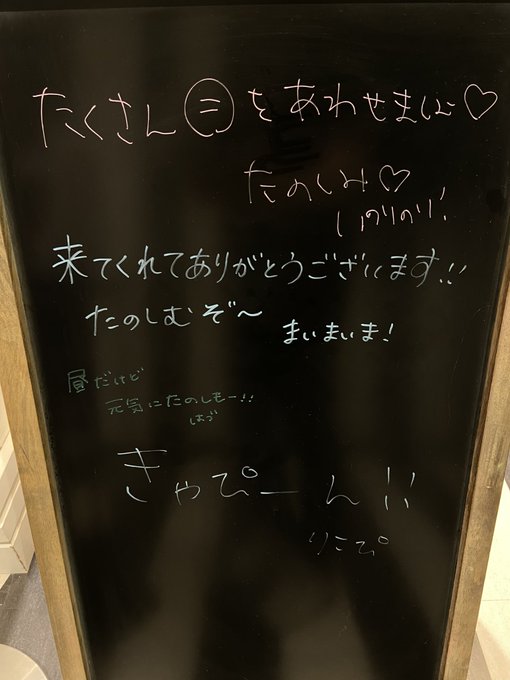 たくさん㊁をあわせましょ♡
たのしみ♡
いのりのり!
来てくれてありがとうございます!!
たのしむぞ〜
まいまいま!
昼だけど
元気にたのしもー!!
はづ
きゃぴーん!!
りこぴ